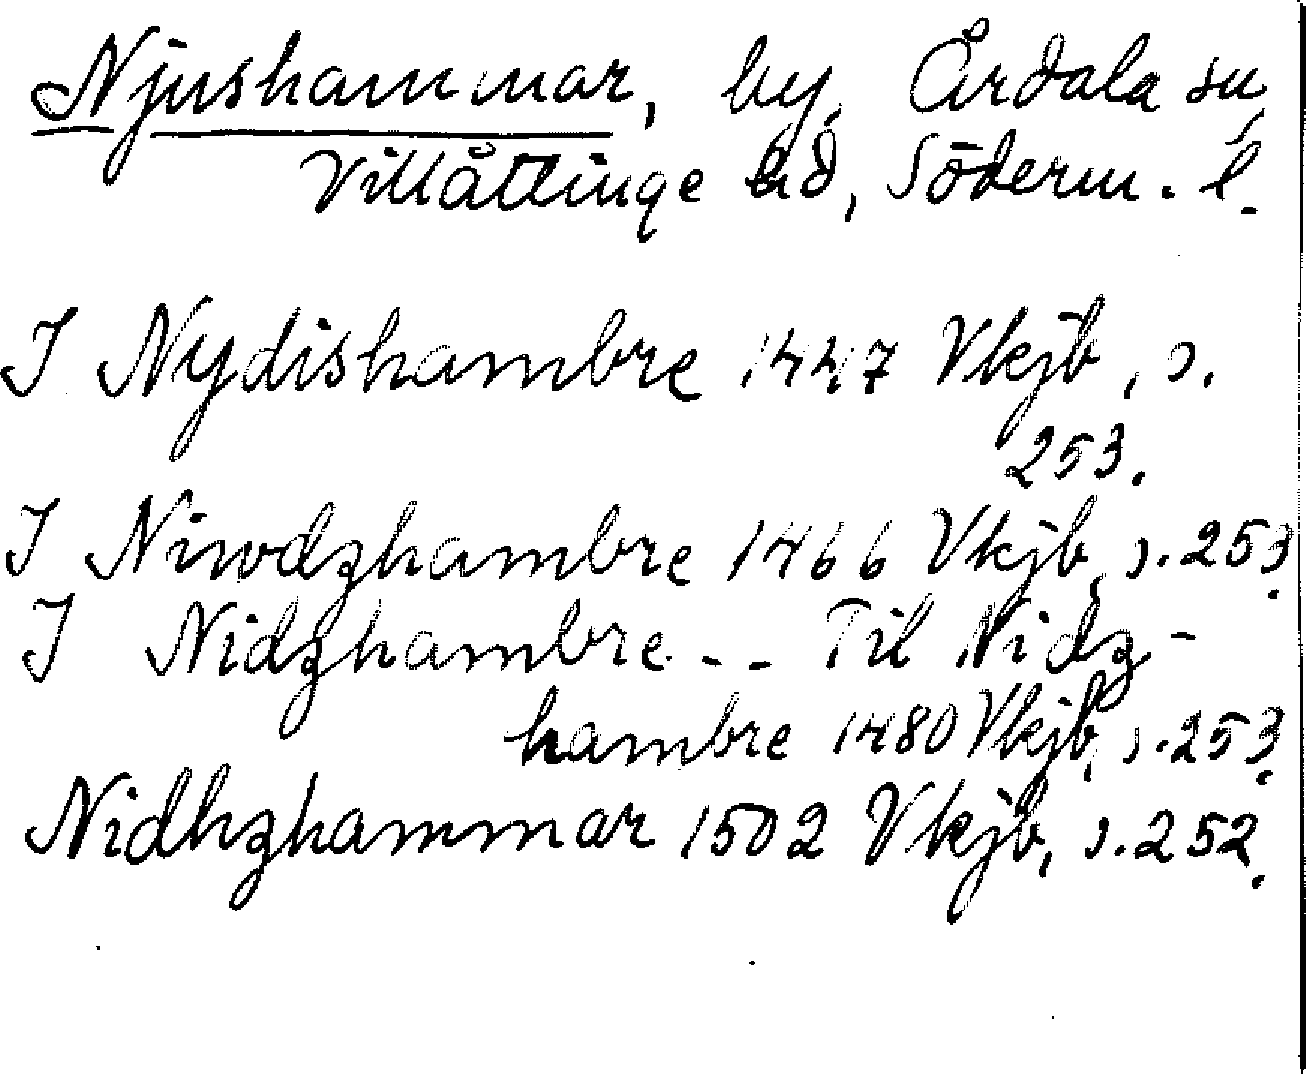 Njushammar, by, Årdala sn,
Villåttinge hd, Söderm. l.
I Nydishambre 1447 Vkjb, s.
253.
I Niwdzhambre 1466 Vkjb, s. 253.
I Nidzhambre - - Til Nidz-
hambre 1480 Vkjb, s. 253.
Nidhzhammar 1502 Vkjb, s. 252.